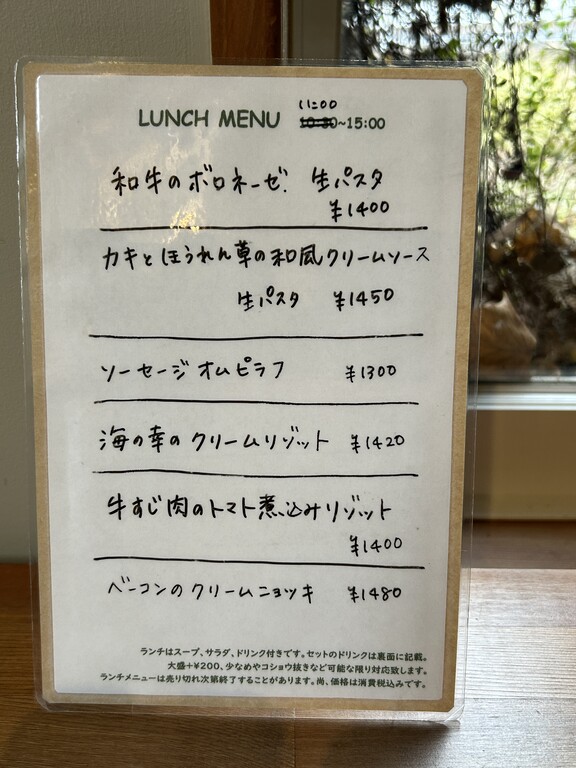 11:00
LUNCH MENU 10:30~15:00
和牛のボロネーゼ. 生パスタ
¥1400
カキとほうれん草の和風クリームソース
生パスタ ¥1450
ソーセージ オムピラフ ¥1300
海の幸のクリームリゾット ¥1420
牛すじ肉のトマト煮込みリゾット
¥1400
ベーコンのクリームニョッキ ¥1480
ランチはスープ、サラダ、ドリンク付きです。セットのドリンクは裏面に記載。
大盛+¥200、少なめやコショウ抜きなど可能な限り対応致します。
ランチメニューは売り切れ次第終了することがあります。尚、価格は消費税込みです。